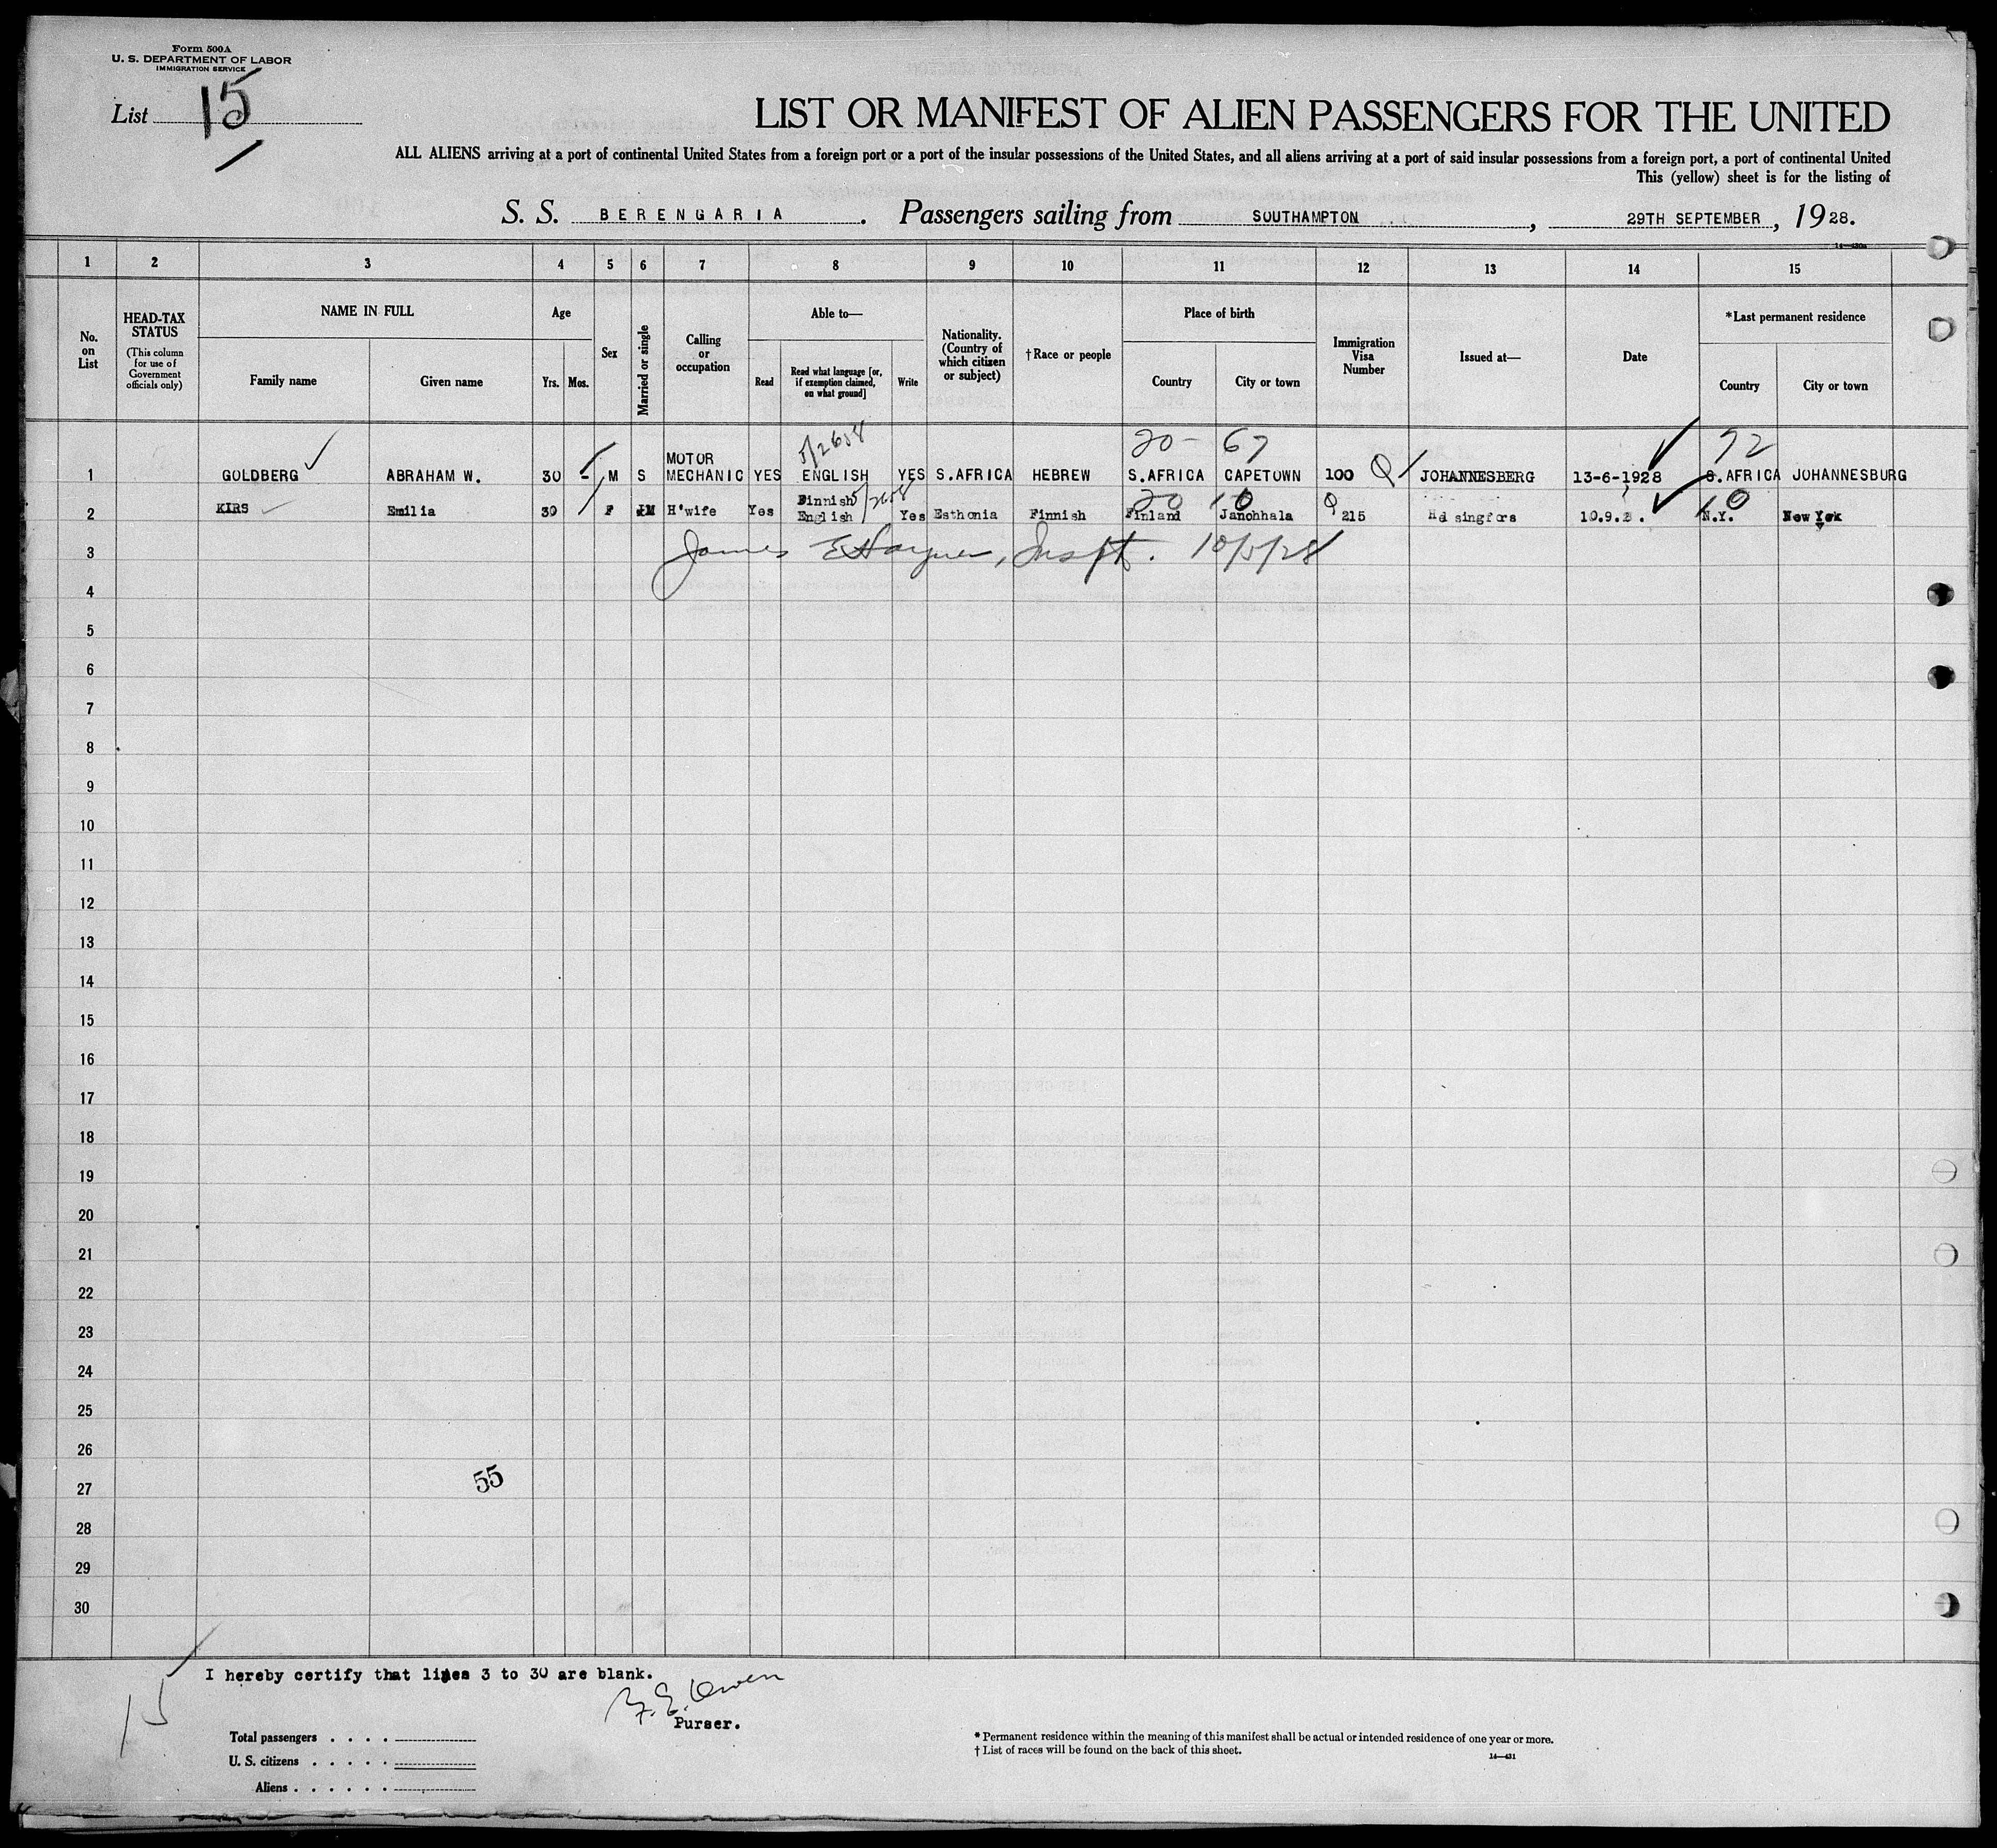 Form 500A
U. S. DEPARTMENT OF LABOR
IMMIGRATION SERVICE
List 15
LIST OR MANIFEST OF ALIEN PASSENGERS FOR THE UNITED
ALL ALIENS arriving at a port of continental United States from a foreign port or a port of the insular possessions of the United States, and all aliens arriving at a port of said insular possessions from a foreign port, a port of continental United
This (yellow) sheet is for the listing of
S. S. BERENGARIA. Passengers sailing from SOUTHAMPTON, 29TH SEPTEMBER, 1928.
1 2 3 4 5 6 7 8 9 10 11 12 13 14 15
No. on List
HEAD-TAX STATUS
(This column for use of Government officials only)
NAME IN FULL
Family name Given name
Age
Yrs. Mos.
Sex
Married or single
Calling or occupation
Able to—
Read
Read what language [or, if exemption claimed, on what ground]
Write
Nationality. (Country of which citizen or subject)
†Race or people
Place of birth
Country City or town
Immigration Visa Number
Issued at—
Date
*Last permanent residence
Country City or town
5/2658 20- 67 72
1 GOLDBERG ABRAHAM W. 30 - M S MOTOR MECHANIC YES ENGLISH YES S.AFRICA HEBREW S.AFRICA CAPETOWN 100 JOHANNESBERG 13-6-1928 S.AFRICA JOHANNESBURG
2 KIRS Emilia 39 F M H'wife Yes Finnish English Yes Esthonia Finnish Finland Janohhala 215 Helsingfors 10.9. N.Y. New York
James E, Inspt. 10/5/28
3
4
5
6
7
8
9
10
11
12
13
14
15
16
17
18
19
20
21
22
23
24
25
26
55
27
28
29
30
I hereby certify that lines 3 to 30 are blank.
15
Owen
Purser.
Total passengers . . . .
U. S. citizens . . . . .
Aliens . . . . . .
* Permanent residence within the meaning of this manifest shall be actual or intended residence of one year or more.
† List of races will be found on the back of this sheet.
14—431